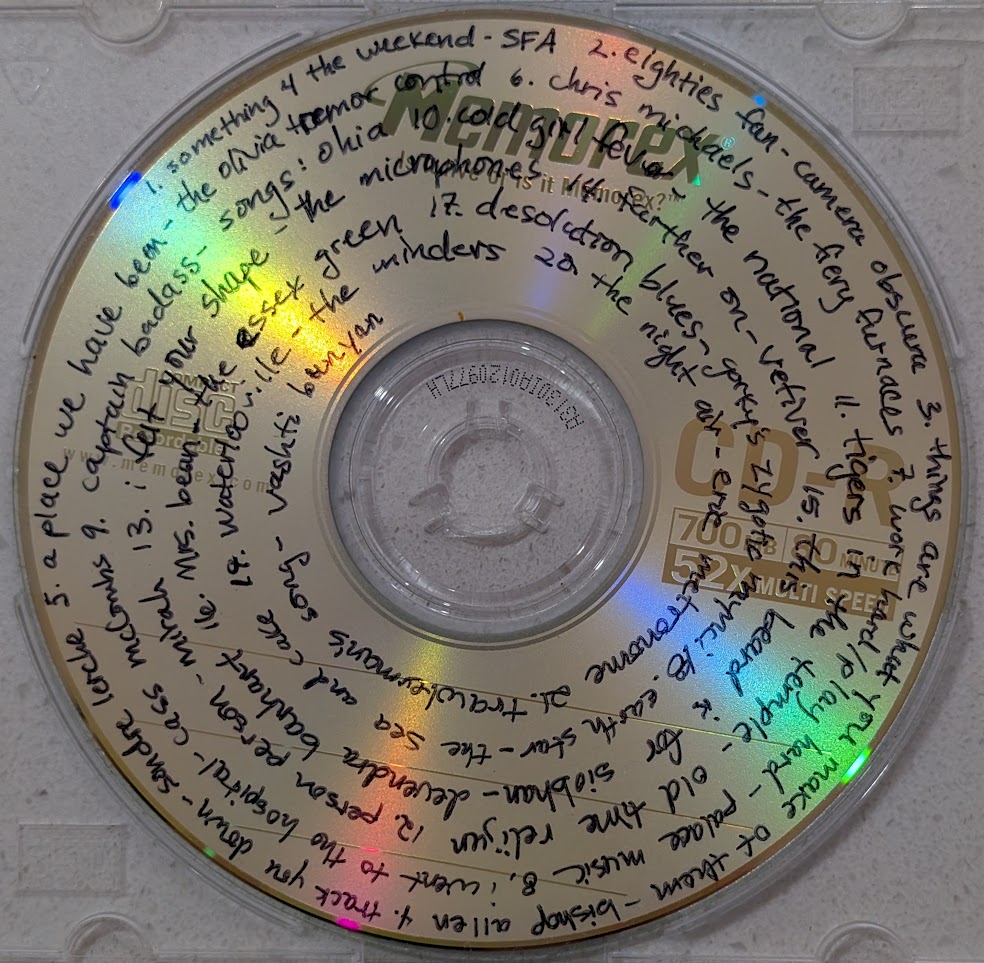 1. something 4 the weekend - SFA
2. eighties fan - camera obscura
3. things are what you make of them - bishop allen
4. track you down - sondre lerche
5. a place we have been - the olivia tremor control
6. chris michaels - the fiery furnaces
7. work hard/play hard - palace music
8. i went to the hospital - cass mccombs
9. captain badass - songs: ohia
10. cold girl fever - the national
11. tigers in the temple - old time relijun
12. person person - mirah
13. i felt your shape - the microphones
14. farther on - vetiver
15. this beard is for siobhan - devendra banhart
16. Mrs. bean - the essex green
17. desolution blues - gorky's zygotic mynci
18. earth star - the sea and cake
19. waterlooville - the minders
20. the night air - eric metronome
21. trawlerman's song - vashti bunyan
Memorex®
or is it Memorex?™
COMPACT
disc
Recordable
www.memorex.com
CD-R
700MB 80 MINUTE
52X MULTI SPEED
A31301201A0120977LH